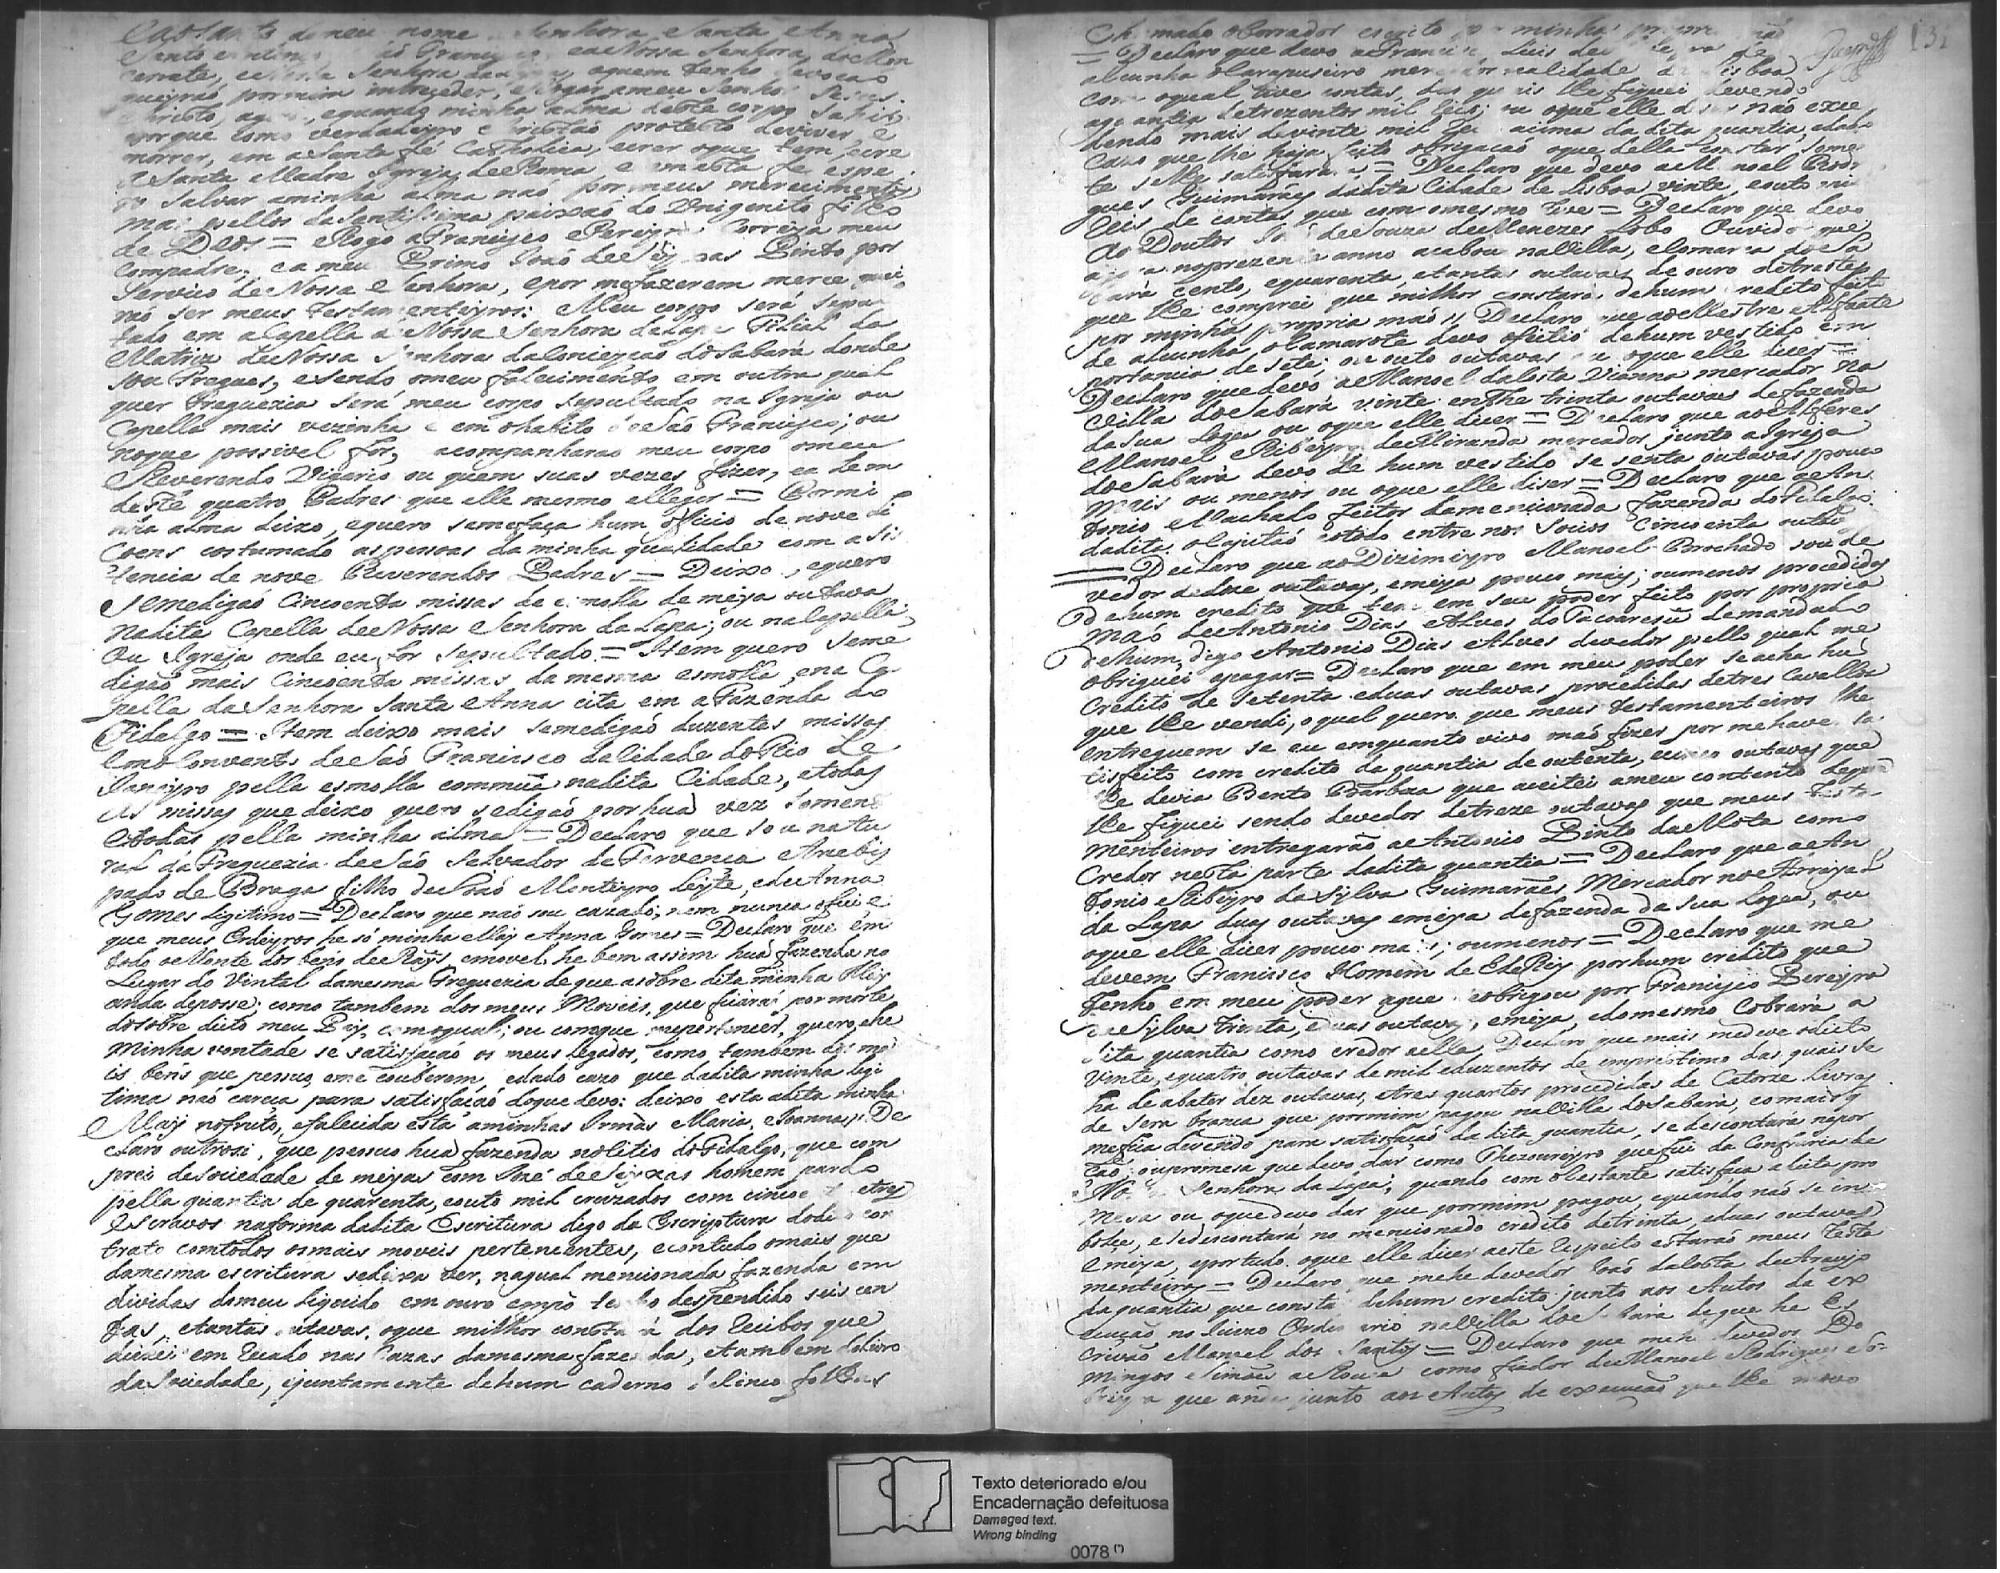 do meu nome Senhora Santa Anna
Santo Francisco eaNossa Senhora do Mon
cerrate, Senhora aquem tenho devoçaõ
queyraõ por mim interceder, erogar ameu Senhor
Christo, equando minha alma deste corpo sahir
porque como verdadeyro christaõ protesto deviver, e
morrer, em a Santa fé Catholica, ecrer oque tem ecre
a Santa Madre Igreja de Roma e em esta fe espe
ro salvar aminha alma naõ por meus merecimentos
mas pellos da Santissima paixaõ do Unigenito filho
de Deos = eRogo aFrancisco Pereyra Correya meu
Compadre, ea meu Primo Joaõ de Pinto por
Servico de Nossa Senhora, epor mefazerem merce quei
raõ ser meus testamenteyros: Meu corpo será sepul
tado em aCapella de Nossa Senhora daLapa Filial da
Matriz de Nossa Senhora daConceyçaõ doSabará donde
sou Freguez, esendo omeu falecimento em outra qual
quer Freguezia será meu corpo sepultado na Igreja ou
Capella mais vezinha em ohabito de Saõ Francisco, ou
noque possivel for, acompanharaõ meu corpo omeu
Reverendo Vigario ou quem suas vezes fizer, ea lem
deste quatro Padres que elle mesmo elleger = Por mi
nha alma deixo, equero semefaça hum officio de nove li
coens costumado aspessoas daminha qualidade com asis
tencia de nove Reverendos Padres = Deixo, equero
semedigaõ Cincoenta missas de esmolla de meya outava
nadita Capella de Nossa Senhora da Lapa; ou naCapella,
Ou Igreja onde eu for Sepultado = Item quero seme
digaõ mais Cincoenta missas da mesma esmolla, ena Ca
pella da Senhora Santa Anna cita em aFazenda do
Fidalgo = Item deixo mais semedigaõ duzentas missas
em oConvento de Saõ Francisco daCidade do Rio de
Janeyro pella esmolla commuã nadita Cidade, etodas
as missas que deixo quero sedigaõ por huã vez somente
etodas pella minha alma = Declaro que sou natu
ral da Freguezia de Saõ Salvador de Fervença Arcebis
pado de Braga filho de Joaõ Monteyro Leyte, ede Anna
Gomes Legitimo = Declaro que naõ sou cazado; nem nunca ofui e
que meus Erdeyros he só minha May Anna Gomes = Declaro que em
todo oMonte dos bens de Rays, emovel he bem assim huã fazenda no
Lugar do Vintal damesma Freguezia de que asobre dita minha May
anda deposse; como tambem dos meus Moveis, que ficáraõ por morte
dosobre dito meu Pay, comoqual; ou comque mepertencer, quero, ehe
minha vontade se satisfaçaõ os meus legados, como tambem dos mo
is bens que pessuo, eme couberem, edado cazo que dadita minha legi
tima naõ careça para satisfaçaõ doque devo: deixo esta adita minha
May nofruto, efalecida esta aminhas Irmãs Maria, eJoanna, De
claro outrosi, que pessuo huã fazenda noCitio doFidalgo, que com
prei desociedade de meyas com José de homem pardo
pella quantia de quarenta, eouto mil cruzados com cincoe etres
Escravos naforma dadita Escritura digo da Escriptura dodito con
trato comtodos osmais moveis pertencentes, econtudo omais que
damesma escritura sedeixa ver, naqual mencionada fazenda em
dividas domeu liquido em ouro empó tenho despendido seis cen
tas, etantas outavas, oque milhor constará dos Recibos que
deixei em nas Cazas damesma fazenda, etambem doLivro
daSociedade, ejuntamente dehum caderno deCinco folhas
Chamado oBorrador escrito por minha propria maõ
= Declaro que devo aFrancisco Luis de
alcunha oCarapuseiro mercador naCidade de Lisboa
com oqual tive contas, das quais lhe fiquei devendo
aquantia detrezentos mil Reis, ou oque elle naõ exce
dendo mais devinte mil Reis acima da dita quantia, edado
cazo que lhe haja feito obrigaçaõ oque della constar some
te selhe satisfará = Declaro que devo a Manoel Rodri
gues Guimarães dadita Cidade de Lisboa vinte, eouto mil
Reis de contas que com omesmo tive = Declaro que devo
Ao Doutor de Souza de Menezes Lobo Ouvidor que
noprezente anno acabou naVilla, eComarca doSa
bará cento, equarenta, etantas outavas de ouro detrastes
que lhe comprei que milhor constará dehum credito feito
por minha propria maõ, Declaro que aoMestre Alfayate
de alcunha oCamarote devo ofeitio dehum vestido em
portancia de sete; ou outo outavas ou oque elle dicer =
Declaro quedevo aManoel daCosta Vianna mercador na
Villa doSabará vinte enthe trinta outavas defazenda
dasua Logea ou oque elle dicer = Declaro que aoAlferes
Manoel Ribeyro deMiranda mercador junto a Igreja
doSabará devo de hum vestido sessenta outavas pouco
mais ou menos ou oque elle diser = Declaro que aAn
tonio Machado Feitor damencionada fazenda doFidalgo
dadita, oCapitaõ etodo entre nos Socios Cincoenta outavas
= Declaro que ao Dizimeyro Manoel Brochado sou de
vedor dedoze outavas, emeya pouco mais; oumenos procedidas
dehum credito que tem em seu poder feito por propria
maõ deAntonio Dias Alves do demandado
dehum, digo Antonio Dias Alves devedor pello qual me
obriguei apagar = Declaro que em meu poder se acha hū
Credito de setenta eduas outavas procedidas detres Cavallos
que lhe vendi, o qual quero que meus testamenteiros lhe
entreguem se eu emquanto vivo naõ fizer por mehaver sa
tisfeito com credito da quantia de outenta, outavas que
lhe devia Bento Barboza que aceitei ameu contento dequem
lhe fiquei sendo devedor detreze outavas que meus testa
menteiros entregaraõ aAntonio Pinto daMota como
Credor nesta parte dadita quantia = Declaro que aAn
tonio Ribeyro da Sylva Guimarães Mercador noArrayal
da Lapa duas outavas emeya defazenda da sua Logea, ou
oque elle dicer pouco mais; oumenos = Declaro que me
devem Francisco Homem de ElRey por hum credito que
tenho em meu poder aque seobrigou por Francisco Pereyra
da Sylva trinta, eduas outavas, emeya, edomesmo Cobrará a
dita quantia como credor nella Declaro que mais medeve odito
vinte, equatro outavas de mil eduzentos de emprestimo das quais se
ha de abater dez outavas, etres quartos procedidas de Catorze livras
de sera branca que pormim pagou naVilla doSabará, eomais q
meficu devendo para satisfaçaõ da dita quantia, se descontará napor
çaõ; oupromesa que devo dar como Thezoureyro quefui da Confraria de
Nossa Senhora da Lapa; quando com oRestante satisfaça adita pro
mesa ou oque devo dar que pormim pagou, equando naõ se in
bolce, esedescontará no mencionado credito detrinta, eduas outavas
emeya, eportudo oque elle dicer aeste respeito estaraõ meus Testa
menteiros = Declaro que mehe devedor Joaõ daCosta deAraujo
daquantia que consta dehum credito junto aos Autos da exe
cuçaõ no Juizo Ordinario naVilla doSabará deque he Es
crivaõ Manoel dos Santos = Declaro que mehe devedor Do
mingos Simões como fiador deManoel Rodrigues
que anda junto aos Autos de execuçaõ que lhe movo
Texto deteriorado e/ou
Encadernação defeituosa
Damaged text.
Wrong binding
0078